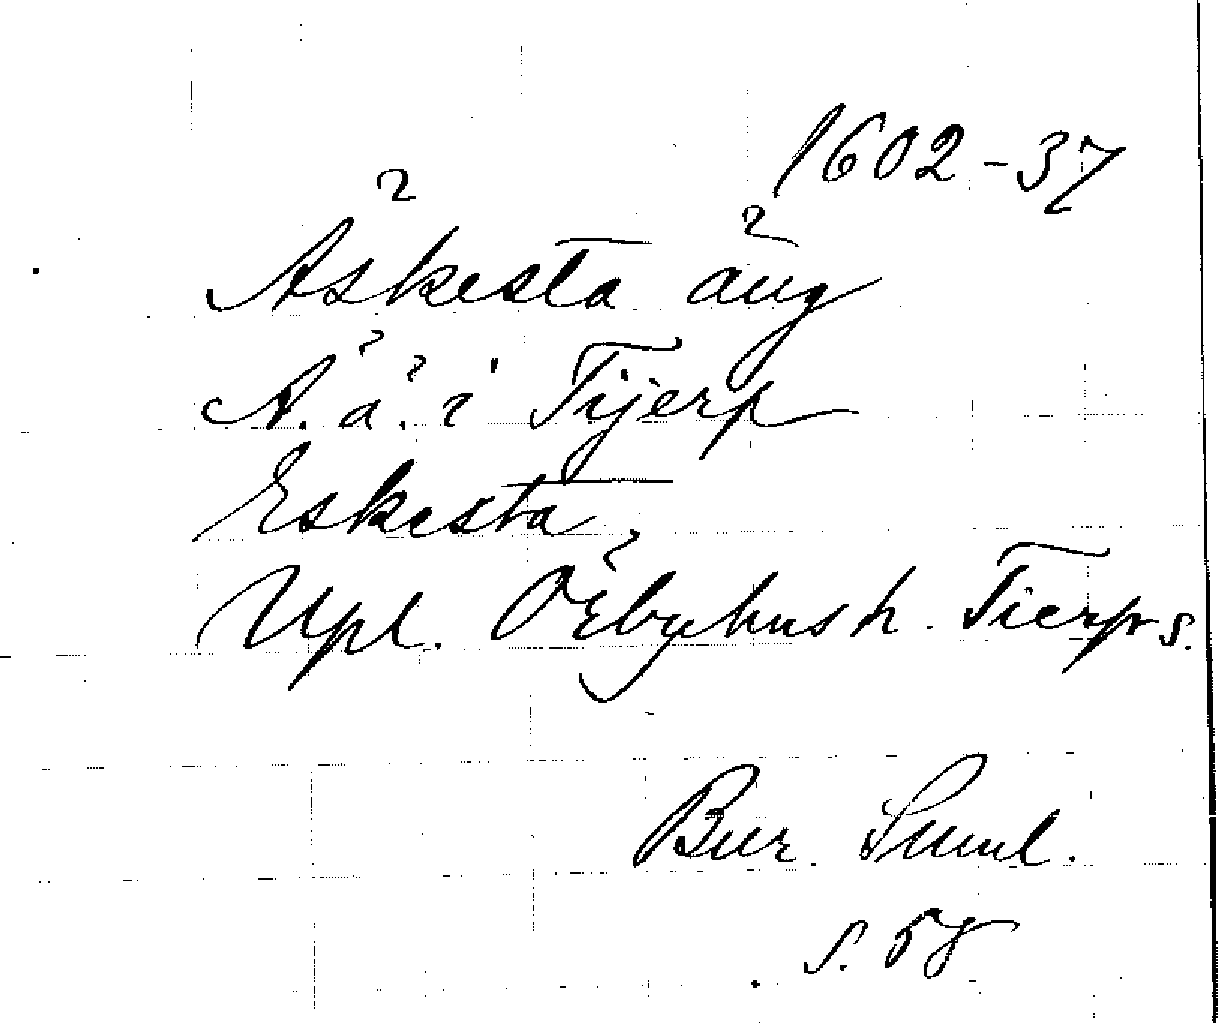 1602-37
Äskesta äng
Ä. ä. i Tijerp
Eskesta
Upl. Örbyhus h. Tierps s.
Bur. Suml.
s. 58